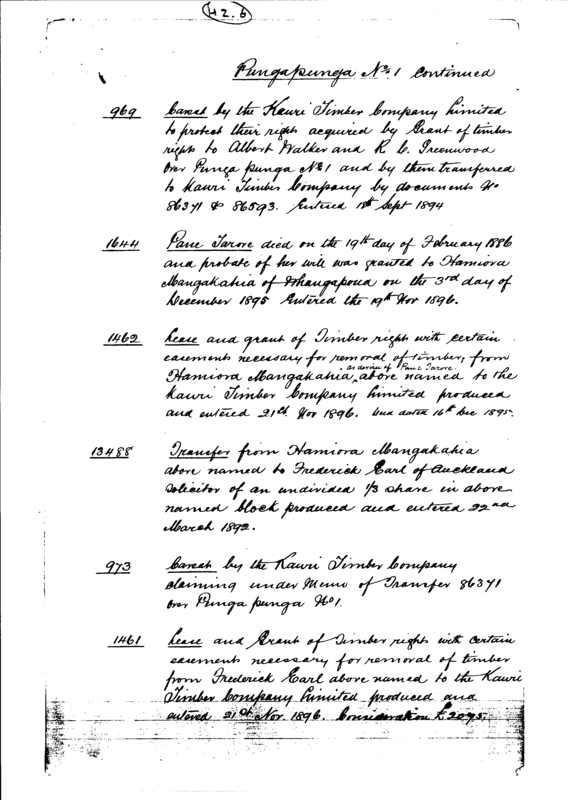 H2.6
Pungapunga No 1 continued
969 Caveat by the Kauri Timber Company Limited
to protect their rights acquired by Grant of timber
rights to Albert Walker and R C. Greenwood
Over Punga punga No 1 and by them transferred
to Kauri Timber Company by documents No
86371 & 86593. Entered 18th Sept 1894
1644 Pane Tarore died on the 19th day of February 1886
and probate of her will was granted to Hamiora
Mangakahia of Whangapoua on the 3rd day of
December 1895 Entered the 19th Nov 1896.
1462 Lease and grant of Timber right with certain
easements necessary for removal of timber, from
as devisee of Pane Tarore
Hamiora Mangakahia, above named to the
Kauri Timber Company Limited produced
and entered 21st Nov 1896. dated 16th Dec 1895.
13488 Transfer from Hamiora Mangakahia
above named to Frederick Earl of Auckland
Solicitor of an undivided 1/3 share in above
named block produced and entered 22nd
March 1892.
973 Caveat by the Kauri Timber Company
claiming under Memo of Transfer 86371
Over Punga punga No 1.
1461 Lease and Grant of Timber rights with certain
easements necessary for removal of timber
from Frederick Earl above named to the Kauri
Timber Company Limited produced and
entered 21st Nov. 1896. Consideration £2095.